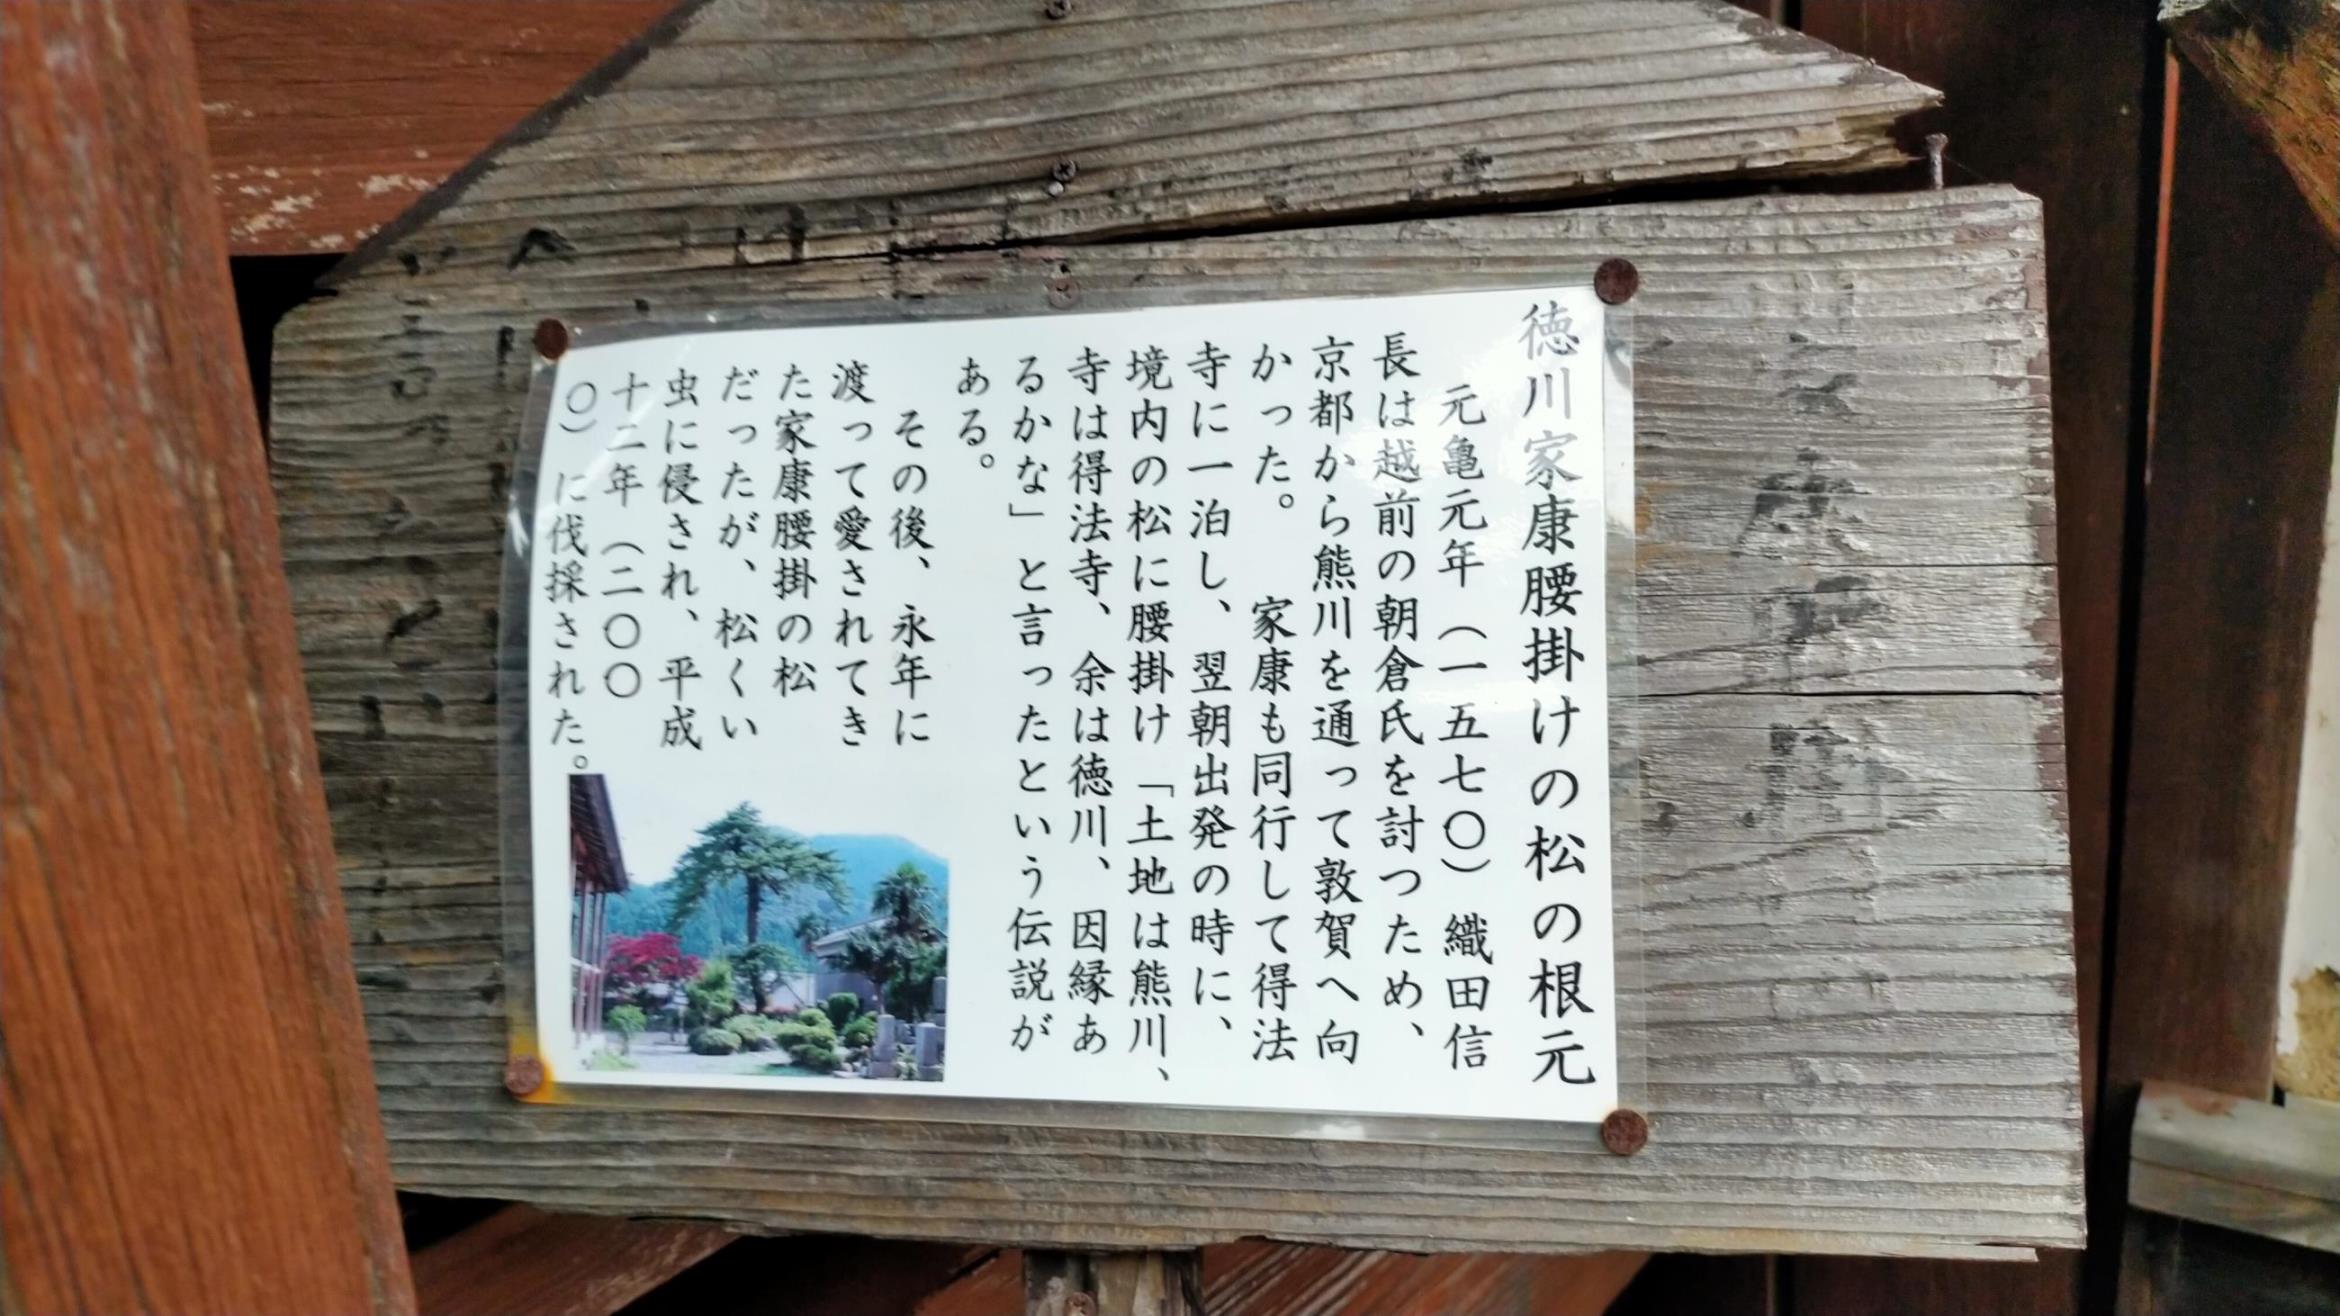 徳川家康腰掛けの松の根元
元亀元年（一五七〇）織田信
長は越前の朝倉氏を討つため、
京都から熊川を通って敦賀へ向
かった。　家康も同行して得法
寺に一泊し、翌朝出発の時に、
境内の松に腰掛け「土地は熊川、
寺は得法寺、余は徳川、因縁あ
るかな」と言ったという伝説が
ある。
その後、永年に
渡って愛されてき
た家康腰掛の松
だったが、松くい
虫に侵され、平成
十二年（二〇〇
〇）に伐採された。